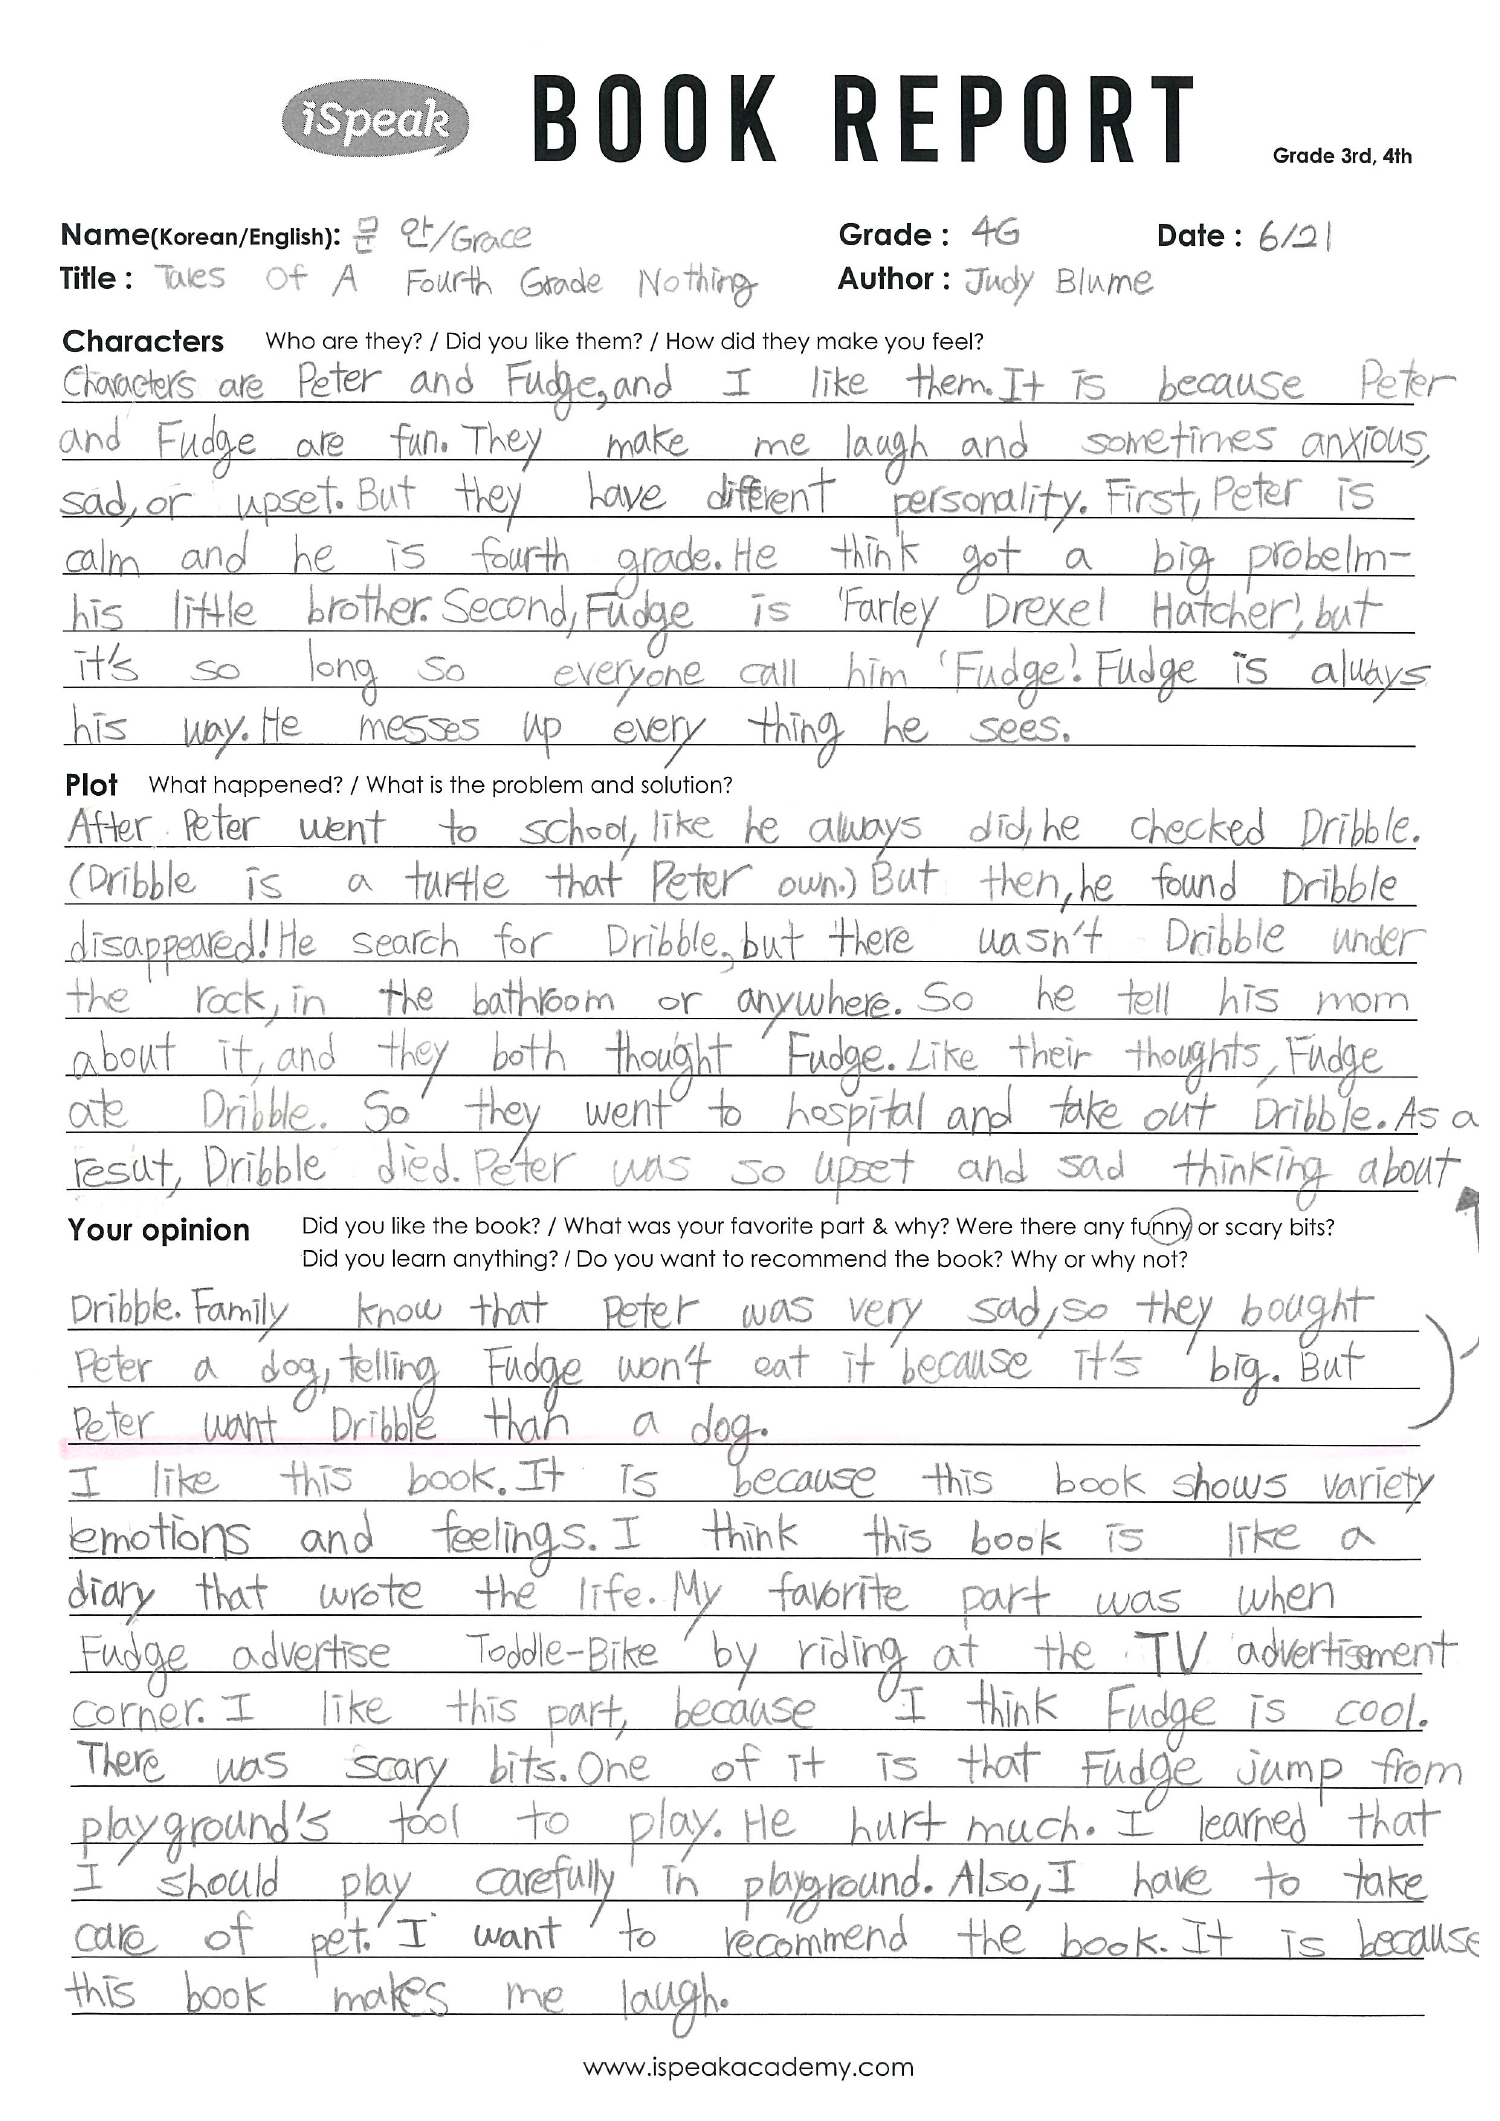 iSpeak BOOK REPORT Grade 3rd, 4th
Name(Korean/English): 문 안/Grace Grade : 4G Date : 6/21
Title : Tales Of A Fourth Grade Nothing Author : Judy Blume
Characters Who are they? / Did you like them? / How did they make you feel?
Characters are Peter and Fudge, and I like them. It is because Peter
and Fudge are fun. They make me laugh and sometimes anxious,
sad, or upset. But they have different personality. First, Peter is
calm and he is fourth grade. He think got a big probelm-
his little brother. Second, Fudge is 'Farley Drexel Hatcher', but
it's so long so everyone call him 'Fudge'. Fudge is always
his way. He messes up every thing he sees.
Plot What happened? / What is the problem and solution?
After Peter went to school, like he always did, he checked Dribble.
(Dribble is a turtle that Peter own.) But then, he found Dribble
disappeared! He search for Dribble, but there wasn't Dribble under
the rock, in the bathroom or anywhere. So he tell his mom
about it, and they both thought Fudge. Like their thoughts, Fudge
ate Dribble. So they went to hospital and take out Dribble. As a
resut, Dribble died. Peter was so upset and sad thinking about
Your opinion Did you like the book? / What was your favorite part & why? Were there any funny or scary bits?
Did you learn anything? / Do you want to recommend the book? Why or why not?
Dribble. Family know that Peter was very sad, so they bought
Peter a dog, telling Fudge won't eat it because it's big. But
Peter want Dribble than a dog.
I like this book. It is because this book shows variety
emotions and feelings. I think this book is like a
diary that wrote the life. My favorite part was when
Fudge advertise Toddle-Bike by riding at the TV advertisement
corner. I like this part, because I think Fudge is cool.
There was scary bits. One of it is that Fudge jump from
playground's tool to play. He hurt much. I learned that
I should play carefully in playground. Also, I have to take
care of pet. I want to recommend the book. It is because
this book makes me laugh.
www.ispeakacademy.com